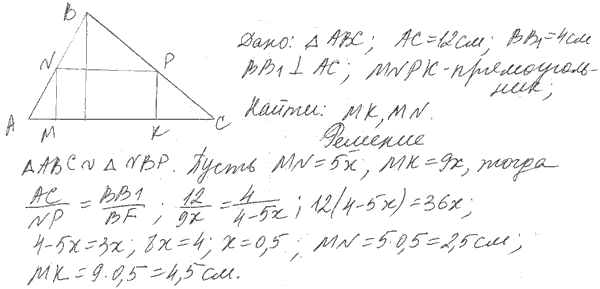 B
N P
A M K C
Дано: △ ABC; AC=12см; BB₁=4см
BB₁ ⊥ AC; MNPK-прямоуголь-
ник;
Найти: MK, MN.
Решение
△ABC ∾ △NBP. Пусть MN=5x, MK=9x, тогда
AC/NP = BB1/BF; 12/9x = 4/4-5x; 12(4-5x)=36x;
4-5x=3x; 8x=4; x=0,5; MN=5·0,5=2,5см;
MK=9·0,5=4,5см.